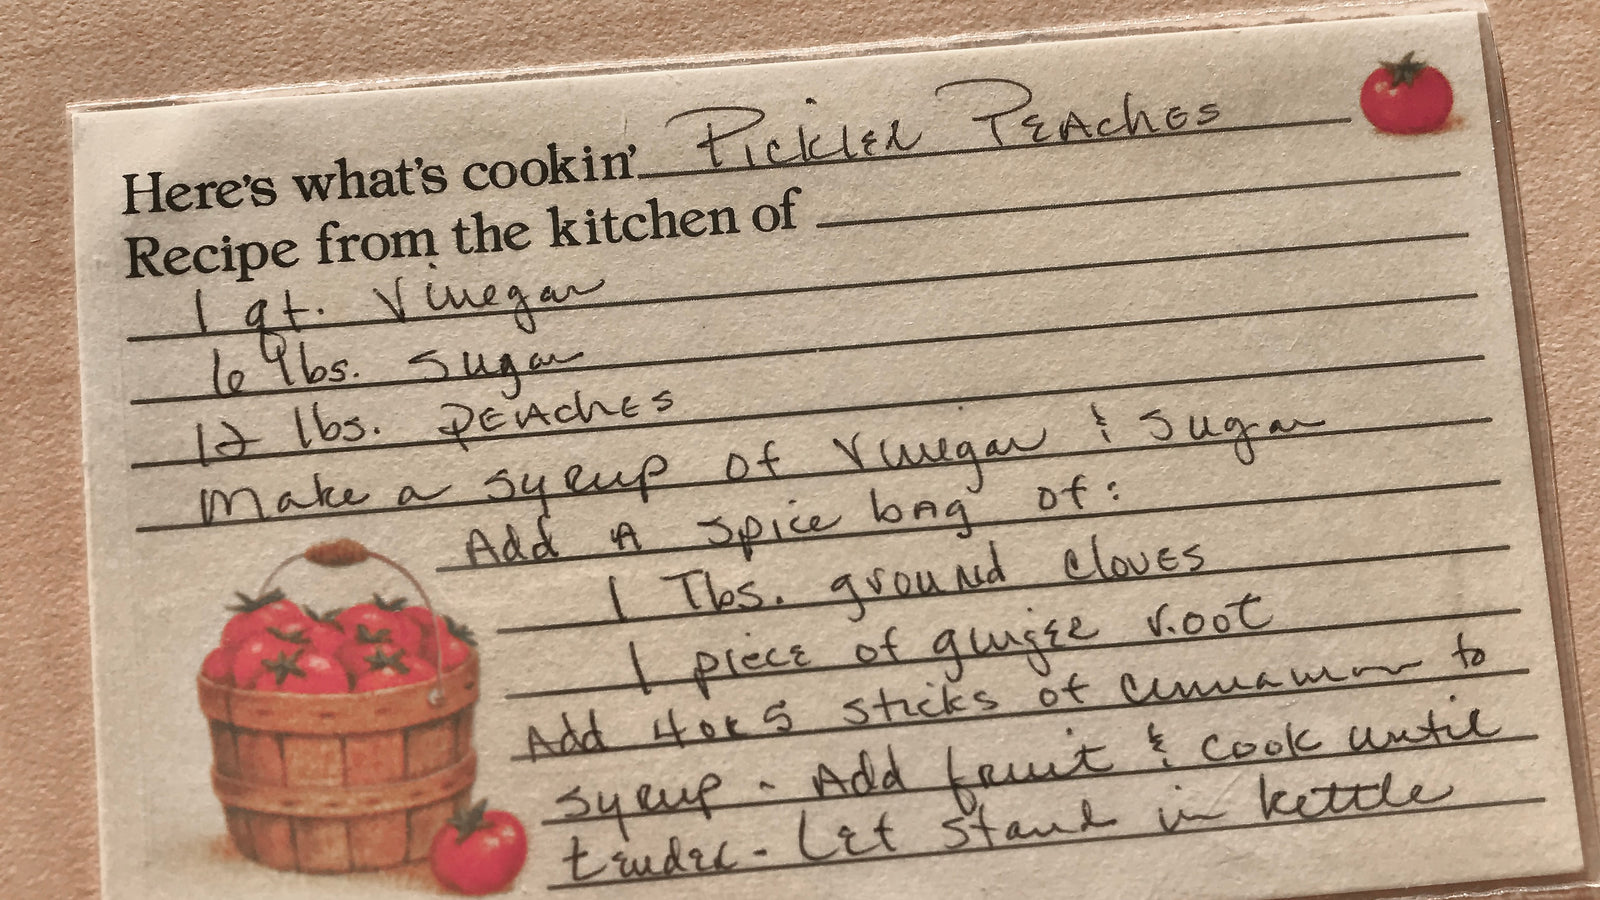 Here's what's cookin' Pickled Peaches
Recipe from the kitchen of
1 qt. Vinegar
6 lbs. Sugar
12 lbs. Peaches
Make a syrup of Vinegar & Sugar
Add a spice bag of:
1 Tbs. ground cloves
1 piece of ginger root
Add 4 or 5 sticks of cinnamon to
syrup - Add fruit & cook until
tender - Let stand in kettle